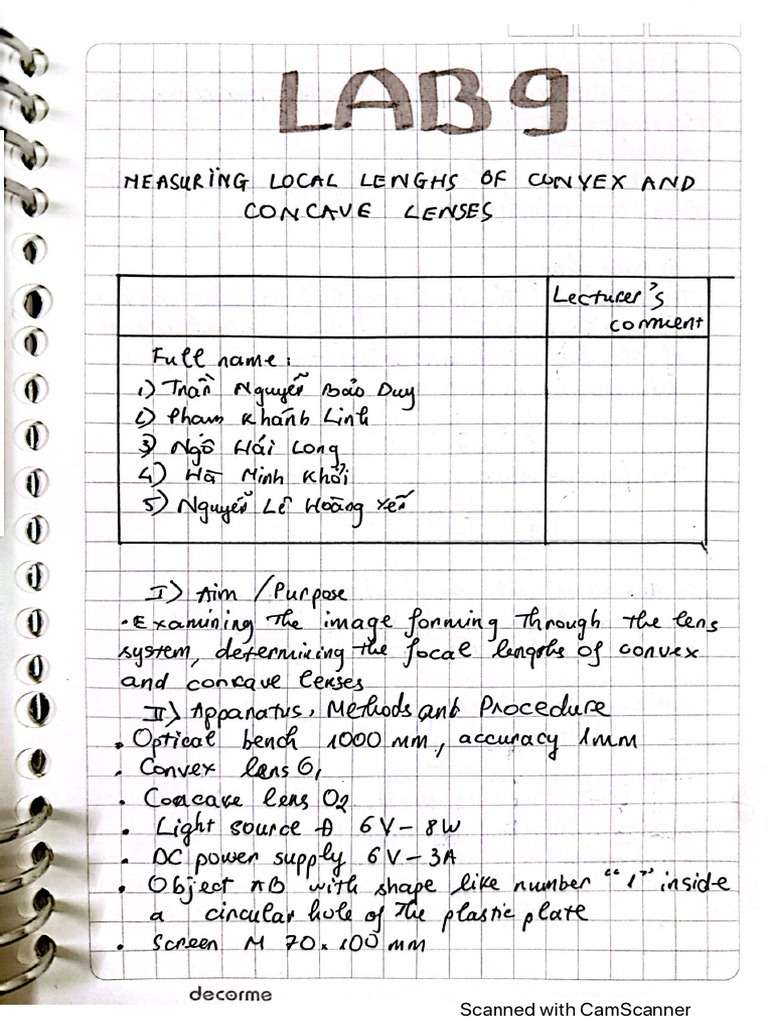 LAB 9
MEASURING LOCAL LENGHS OF CONVEX AND
CONCAVE LENSES
Lecturer's
comment
Full name:
1) Trần Nguyễn Bảo Duy
2) Pham Khánh Linh
3) Ngô Hải Long
4) Hà Minh Khởi
5) Nguyễn Lê Hoàng Yến
I) Aim / Purpose
. Examining the image forming through the lens
system, determining the focal lengths of convex
and concave lenses
II) Apparatus, Methods and Procedure
. Optical bench 1000 mm, accuracy 1mm
. Convex lens O1
. Concave lens O2
. Light source Đ 6V - 8W
. DC power supply 6V - 3A
. Object AB with shape like number "1" inside
a circular hole of the plastic plate
. Screen M 70 x 100 mm
decorme
Scanned with CamScanner